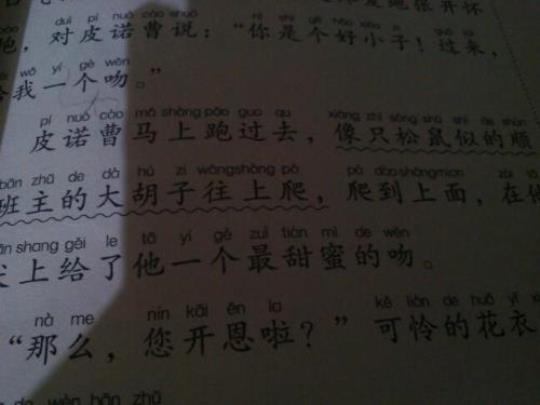 duì pí nuò cáo shuō nǐ shì gè hǎo xiǎo zi guò lái
，对皮诺曹说：“你是个好小子！过来，
wǒ yí gè wěn
我一个吻。”
pí nuò cáo mǎ shàng pǎo guo qu xiàng zhī sōng shǔ shì de shùn
皮诺曹马上跑过去，像只松鼠似的顺
bān zhǔ de dà hú zi wǎng shàng pá pá dào shàng mian zài
班主的大胡子往上爬，爬到上面，在
shang gěi le tā yí gè zuì tián mì de wěn
上给了他一个最甜蜜的吻。
nà me nín kāi ēn la kě lián de huā yī
“那么，您开恩啦？”可怜的花衣
de wèn bān zhǔ